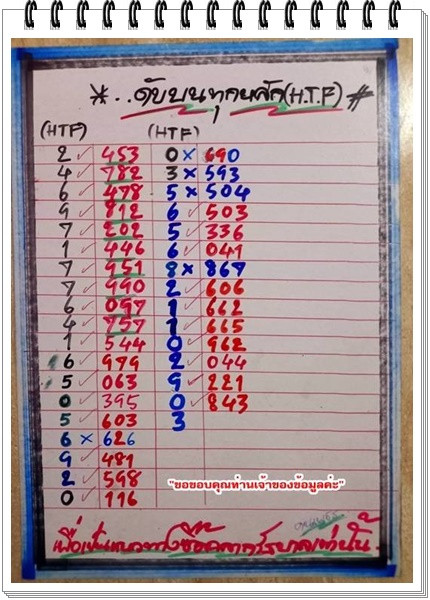 *..ดับบนทุกหลัก(H.T.F)#
(HTF) (HTF)
2 ✓ 453 0 × 690
4 ✓ 782 3 × 593
6 ✓ 478 5 × 504
9 ✓ 812 6 ✓ 503
7 ✓ 202 5 ✓ 336
1 ✓ 446 6 ✓ 041
7 ✓ 951 8 × 867
7 ✓ 990 2 ✓ 606
6 ✓ 097 1 ✓ 662
4 ✓ 757 1 ✓ 665
1 ✓ 544 0 ✓ 962
6 ✓ 979 2 ✓ 044
5 ✓ 063 9 ✓ 221
0 ✓ 395 0 ✓ 843
5 ✓ 603 3
6 × 626
9 ✓ 481
2 ✓ 598
0 ✓ 116
"ขอขอบคุณท่านเจ้าของข้อมูลค่ะ"
เพื่อเป็นแนวทางซื้อสลากฯรัฐบาลเท่านั้น